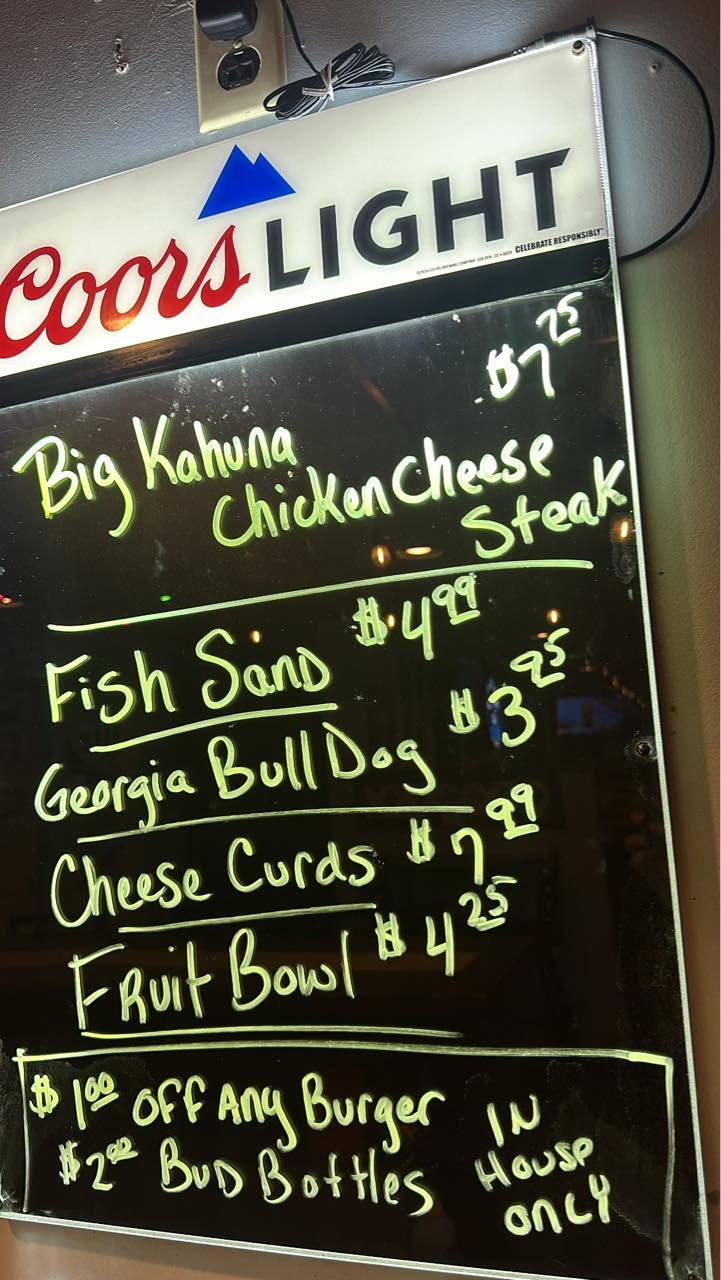 Coors LIGHT
CELEBRATE RESPONSIBLY
$7 25
Big Kahuna
Chicken Cheese
Steak
Fish Sand $4 99
Georgia Bull Dog $3 95
Cheese Curds $7 99
Fruit Bowl $4 25
$1 00 OFF Any Burger
$2 00 BUD Bottles
IN
House
ONLY